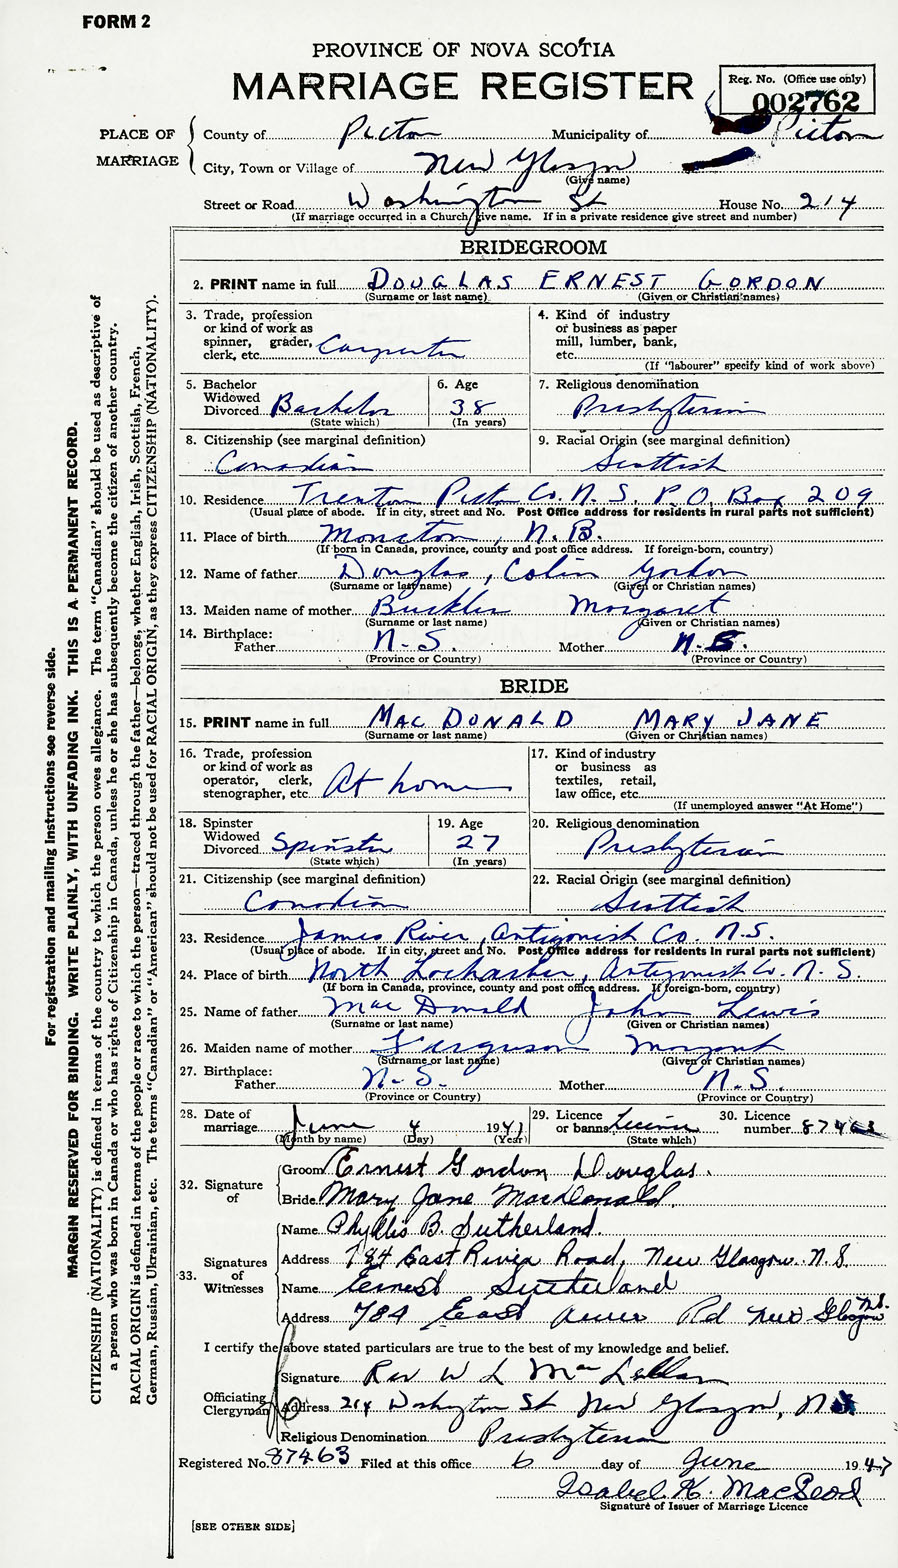 FORM 2
PROVINCE OF NOVA SCOTIA
MARRIAGE REGISTER
Reg. No. (Office use only)
002762
PLACE OF MARRIAGE
County of Pictou Municipality of Pictou
City, Town or Village of New Glasgow
(Give name)
Street or Road Washington St House No. 214
(If marriage occurred in a Church give name. If in a private residence give street and number)
BRIDEGROOM
2. PRINT name in full DOUGLAS ERNEST GORDON
(Surname or last name) (Given or Christian names)
3. Trade, profession or kind of work as spinner, grader, clerk, etc. Carpenter
4. Kind of industry or business as paper mill, lumber, bank, etc.
(If "labourer" specify kind of work above)
5. Bachelor Widowed Divorced Bachelor
(State which)
6. Age 38
(In years)
7. Religious denomination
Presbyterian
8. Citizenship (see marginal definition)
Canadian
9. Racial Origin (see marginal definition)
Scottish
10. Residence Trenton Pictou Co. N. S. P.O. Box 209
(Usual place of abode. If in city, street and No. Post Office address for residents in rural parts not sufficient)
11. Place of birth Moncton, N. B.
(If born in Canada, province, county and post office address. If foreign-born, country)
12. Name of father Douglas, Colin Gordon
(Surname or last name) (Given or Christian names)
13. Maiden name of mother Margaret
(Surname or last name) (Given or Christian names)
14. Birthplace:
Father N. S. Mother N. B.
(Province or Country) (Province or Country)
BRIDE
15. PRINT name in full MAC DONALD MARY JANE
(Surname or last name) (Given or Christian names)
16. Trade, profession or kind of work as operator, clerk, stenographer, etc. At home
17. Kind of industry or business as textiles, retail, law office, etc.
(If unemployed answer "At Home")
18. Spinster Widowed Divorced Spinster
(State which)
19. Age 27
(In years)
20. Religious denomination
Presbyterian
21. Citizenship (see marginal definition)
Canadian
22. Racial Origin (see marginal definition)
Scottish
23. Residence James River, Antigonish Co. N.S.
(Usual place of abode. If in city, street and No. Post Office address for residents in rural parts not sufficient)
24. Place of birth North Lochaber, Antigonish Co. N. S.
(If born in Canada, province, county and post office address. If foreign-born, country)
25. Name of father Mac Donald John Lewis
(Surname or last name) (Given or Christian names)
26. Maiden name of mother Ferguson Margaret
(Surname or last name) (Given or Christian names)
27. Birthplace:
Father N. S. Mother N. S.
(Province or Country) (Province or Country)
28. Date of marriage June 4 1947
(Month by name) (Day) (Year)
29. Licence or banns License
(State which)
30. Licence number 87463
32. Signature of
Groom Ernest Gordon Douglas.
Bride Mary Jane MacDonald.
33. Signatures of Witnesses
Name Phyllis B. Sutherland.
Address 784 East River Road, New Glasgow. N.S
Name Ernest Sutherland
Address 784 East River Rd New Glasgow N.S.
I certify the above stated particulars are true to the best of my knowledge and belief.
Officiating Clergyman
Signature Rev W L Mac Lellan
Address 214 Washington St New Glasgow, N.S
Religious Denomination Presbyterian
Registered No. 87463 Filed at this office 6 day of June 1947
Isabel K. MacLeod
Signature of Issuer of Marriage Licence
[SEE OTHER SIDE]
For registration and mailing instructions see reverse side.
MARGIN RESERVED FOR BINDING. WRITE PLAINLY, WITH UNFADING INK. THIS IS A PERMANENT RECORD.
CITIZENSHIP (NATIONALITY) is defined in terms of the country to which the person owes allegiance. The term "Canadian" should be used as descriptive of
a person who was born in Canada or who has rights of Citizenship in Canada, unless he or she has subsequently become the citizen of another country.
RACIAL ORIGIN is defined in terms of the people or race to which the person—traced through the father—belongs, whether English, Irish, Scottish, French,
German, Russian, Ukrainian, etc. The terms "Canadian" or "American" should not be used for RACIAL ORIGIN, as they express CITIZENSHIP (NATIONALITY).